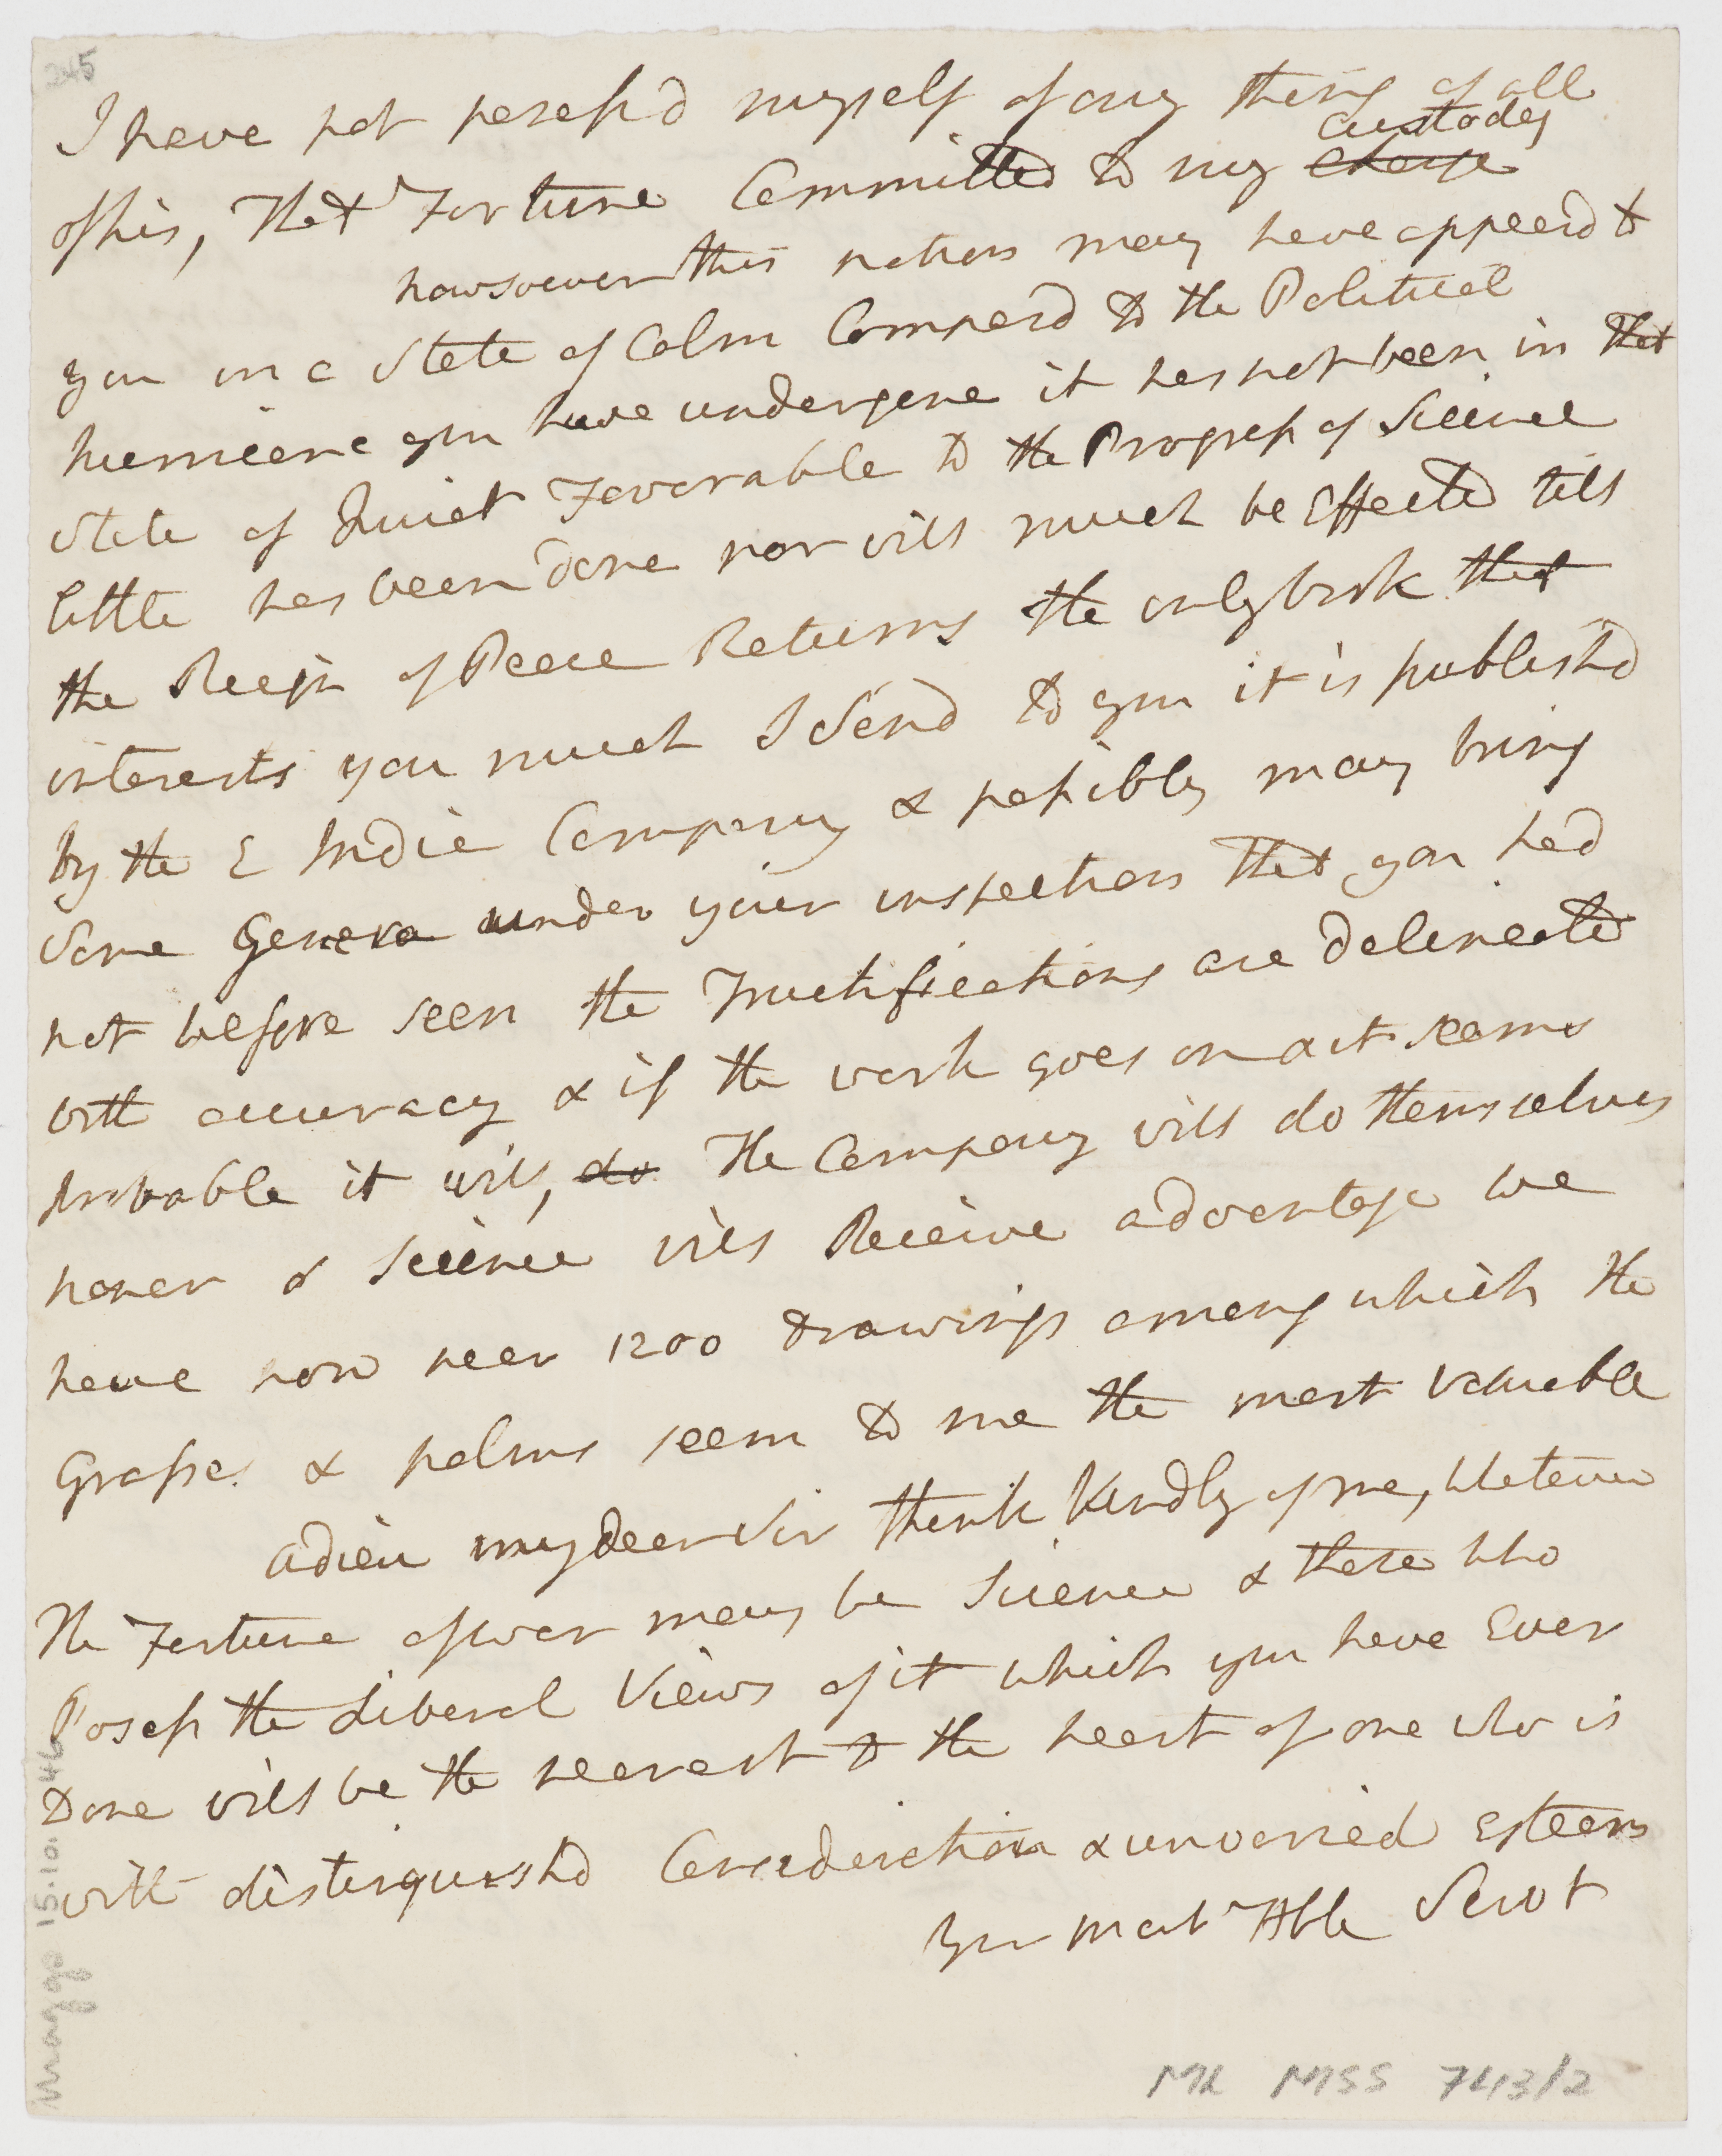 245
I have not posess'd myself of any thing of all
custody
of his, That Fortune Committed to my charge
howsoever this nation may have appeard to
you in a State of Calm Compard to the Political
hurricane you have undergone it has not been in that
State of Quiet Favorable to the Progress of Science
little has been done nor will much be Effected till
the Reign of Peace Returns the only book that
interests you much I Send to you it is publishd
by the E India Company & possibly may bring
Some Genera under your inspection that you had
not before seen the Fructifications are delineated
with accuracy & if the work goes on as it seems
probable it will, do The Company will do themselves
honor & Science will Receive advantage we
have now near 1200 Drawings among which the
Grasses & palms seem to me the most valuable
adieu my dear Sir think kindly of me, Whatever
The Fortune of war may be Science & those who
Posess the Liberal Views of it which you have Ever
Done will be the nearest to the heart of one who is
with distinguishd Consideration & unvaried Esteem
Your most H'ble Serv t
ML MSS 743/2
Maggs 15.10.46